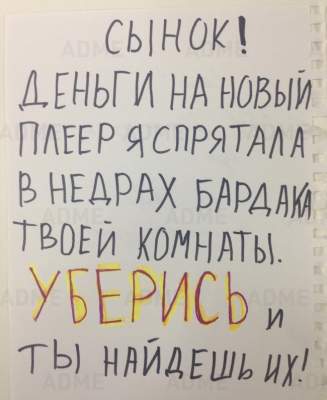 СЫНОК!
ДЕНЬГИ НА НОВЫЙ
ПЛЕЕР Я СПРЯТАЛА
В НЕДРАХ БАРДАКА
ТВОЕЙ КОМНАТЫ.
УБЕРИСЬ и
ТЫ НАЙДЕШЬ ИХ!